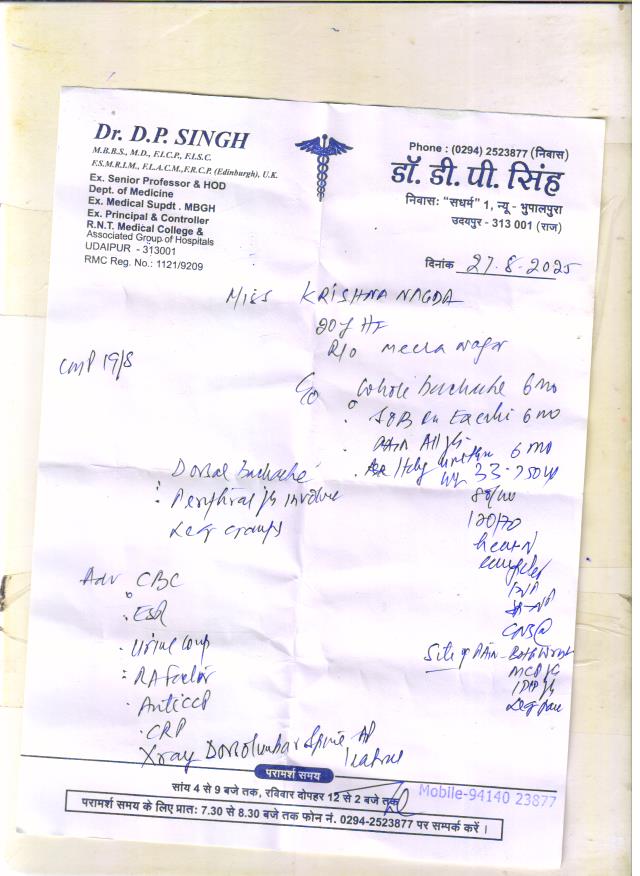 Dr. D.P. SINGH
M.B.B.S., M.D., F.I.C.P., F.I.S.C.
F.S.M.R.I.M., F.I.A.C.M.,F.R.C.P. (Edinburgh), U.K.
Ex. Senior Professor & HOD
Dept. of Medicine
Ex. Medical Supdt . MBGH
Ex. Principal & Controller
R.N.T. Medical College &
Associated Group of Hospitals
UDAIPUR - 313001
RMC Reg. No.: 1121/9209
Phone : (0294) 2523877 (निवास)
डॉ. डी. पी. सिंह
निवास: "सधर्म" 1, न्यू - भुपालपुरा
उदयपुर - 313 001 (राज)
दिनांक 27.8.2025
Miss KRISHNA NAGDA
20y HF
R/o meera nagar
19/8
C/o whole backache 6 mo
SOB on 6 mo
PAIN All jts
6 mo
Wt 33.750
Dorsal Backache
Peripheral jts involve
Leg cramps
88/m
120/70
heart N
Adv CBC
ESR
Urine comp
RA Factor
Anti CCP
CRP
Xray Dorsolumbar Spine AP
Lateral
Site of PAIN - Both Wrist
MCP jts
Leg pain
परामर्श समय
सांय 4 से 9 बजे तक, रविवार दोपहर 12 से 2 बजे तक
Mobile-94140 23877
परामर्श समय के लिए प्रात: 7.30 से 8.30 बजे तक फोन नं. 0294-2523877 पर सम्पर्क करें ।